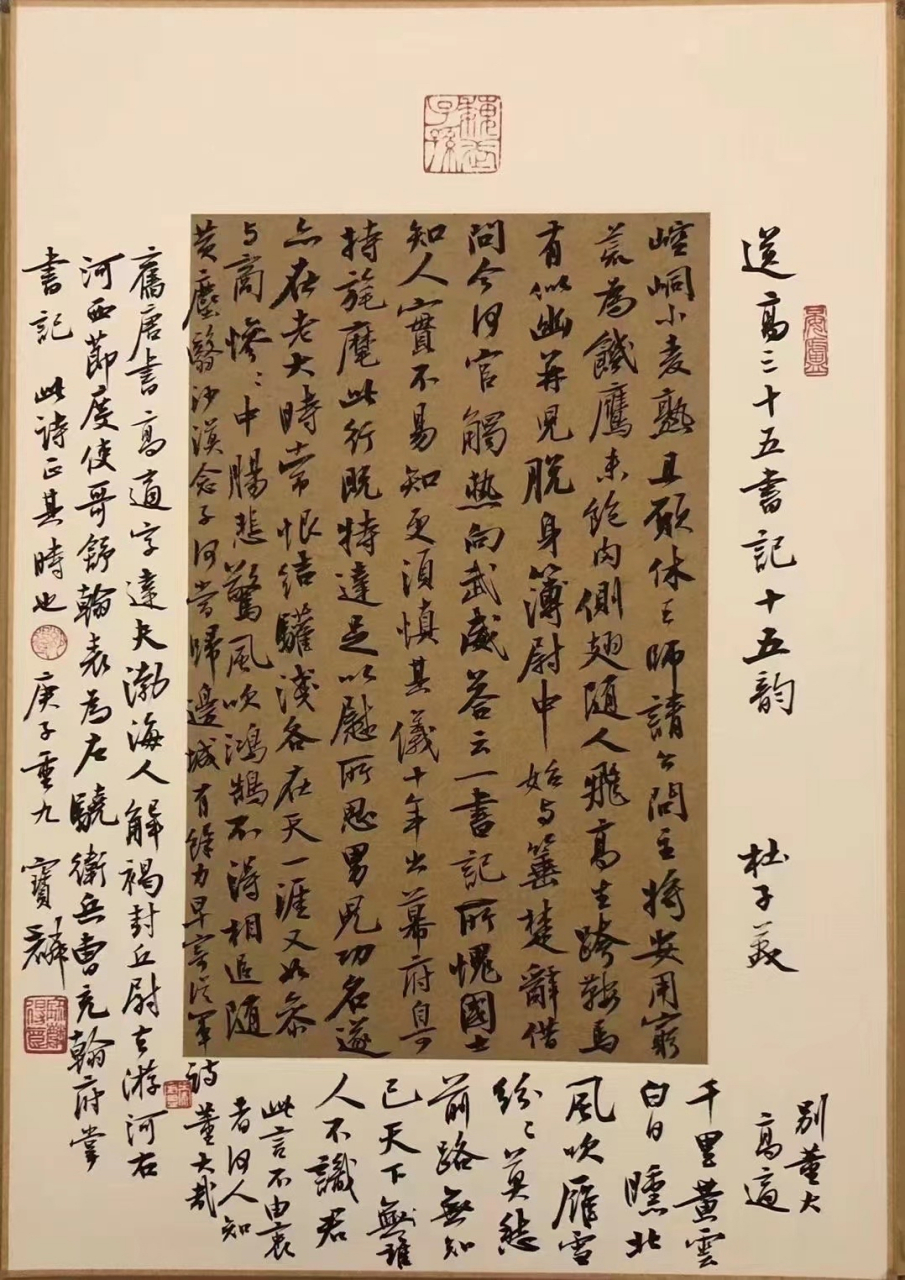 送高三十五書記十五韵 杜子美
崆峒小麦熟且願休王師請公問主将安用窮
荒為饑鷹未飽肉側翅随人飛高生跨鞍馬
有似幽并児脱身簿尉中始与箠楚辭借
問今何官觸热向武威荅云一書記所愧國士
知人實不易知更須慎其儀十年出幕府自可
持旌麾此行既特達足以慰所思男児功名遂
亦在老大時常恨结驩浅各在天一涯又如参
与商惨〻中腸悲驚風吹鴻鵠不得相追随
黄塵翳沙漠念子何當歸邊城有餘力早寄從軍詩
别董大
高適
千里黄雲
白日曛北
風吹雁雪
纷〻莫愁
前路無知
已天下無誰
人不識君
此言不由衷
者何人知
董大哉
舊唐書高適字達夫渤海人解褐封丘尉去游河右
河西節度使哥舒翰表為左驍衛兵曹充翰府掌
書記 此詩正其時也 庚子重九 寶麟